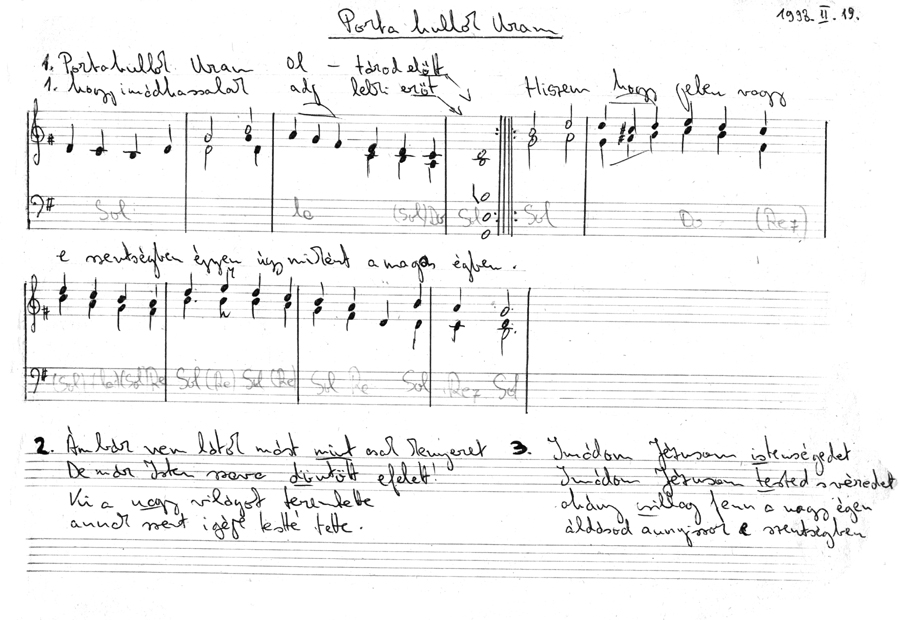 Porta hullok Uram
1993. II. 19.
1. Porta hullok Uram Ol - tárod előtt
1. hogy imádhassalak adj lelki erőt Hiszem hogy jelen vagy
Sol la (Sol) Do Sol Sol Do (Re7)
e szentségben éppen úgy miként a magas égben.
Sol (Re) Sol (Re) Sol Re Sol Re7 Sol
2. Ámbár nem látok mást mint csak kenyeret
De már Isten szava döntött efelett!
Ki a nagy világot teremtette
annak szent igéje testté tette.
3. Imádom Jézusom istenségedet
Imádom Jézusom tested s véredet
ahány csillag fenn a nagy égen
áldásod annyiszor e szentségben